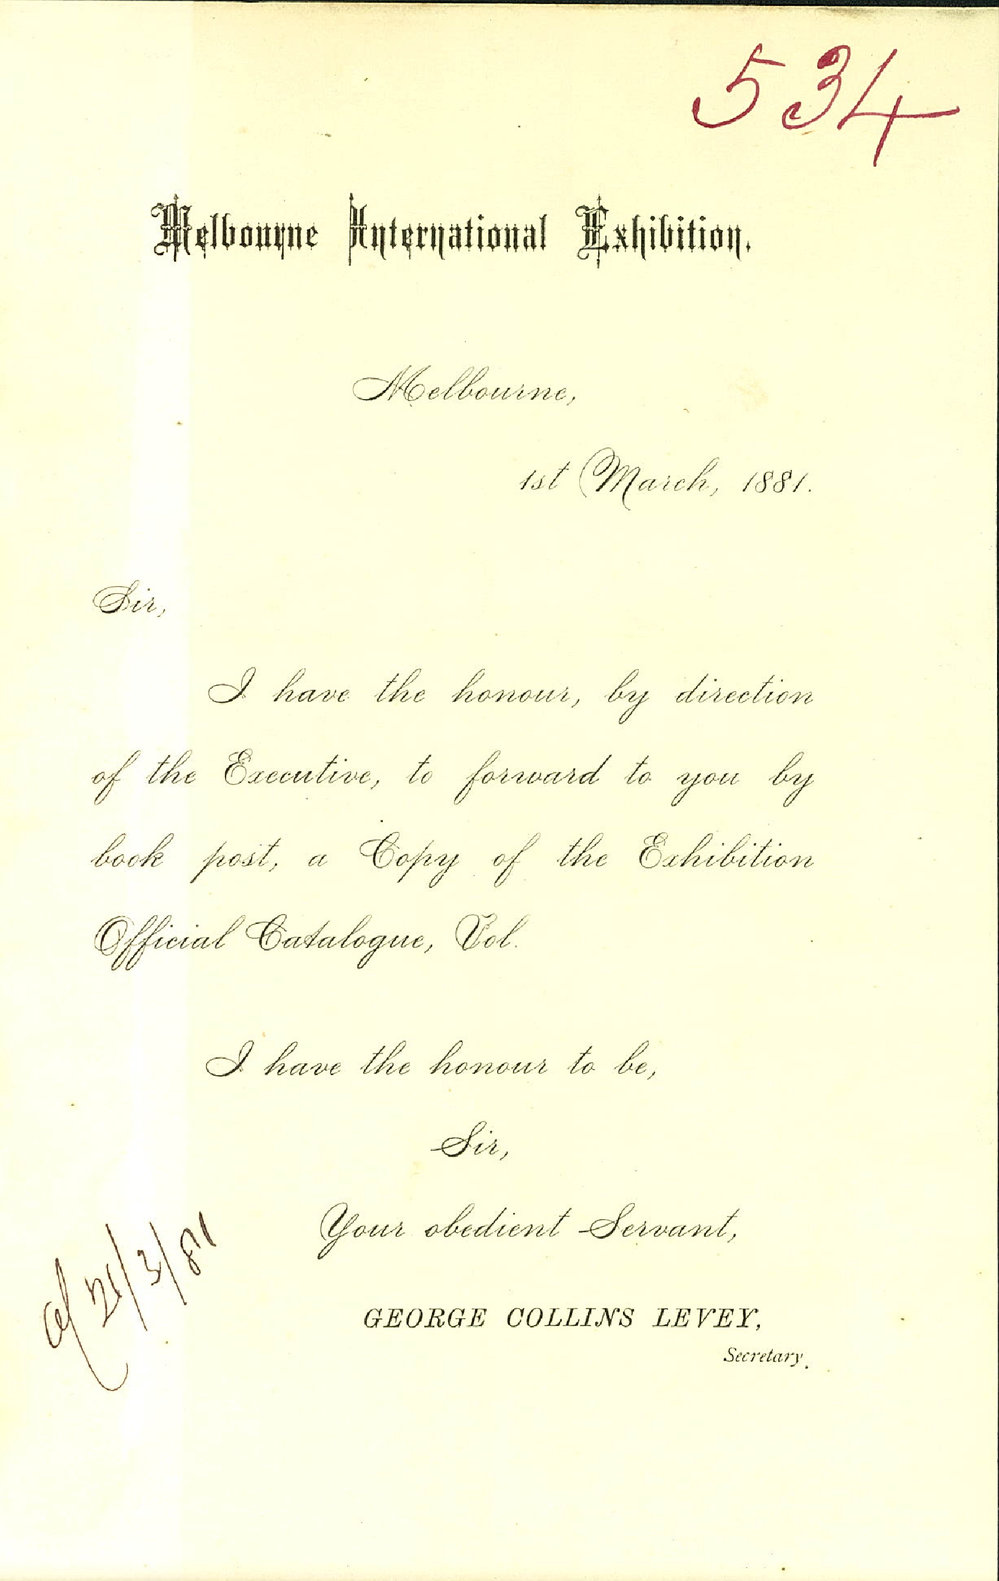 534
Melbourne International Exhibition.
Melbourne,
1st March, 1881.
Sir,
I have the honour, by direction
of the Executive, to forward to you by
book post, a Copy of the Exhibition
Official Catalogue, Vol.
I have the honour to be,
Sir,
Your obedient Servant,
GEORGE COLLINS LEVEY,
Secretary.
21/3/81